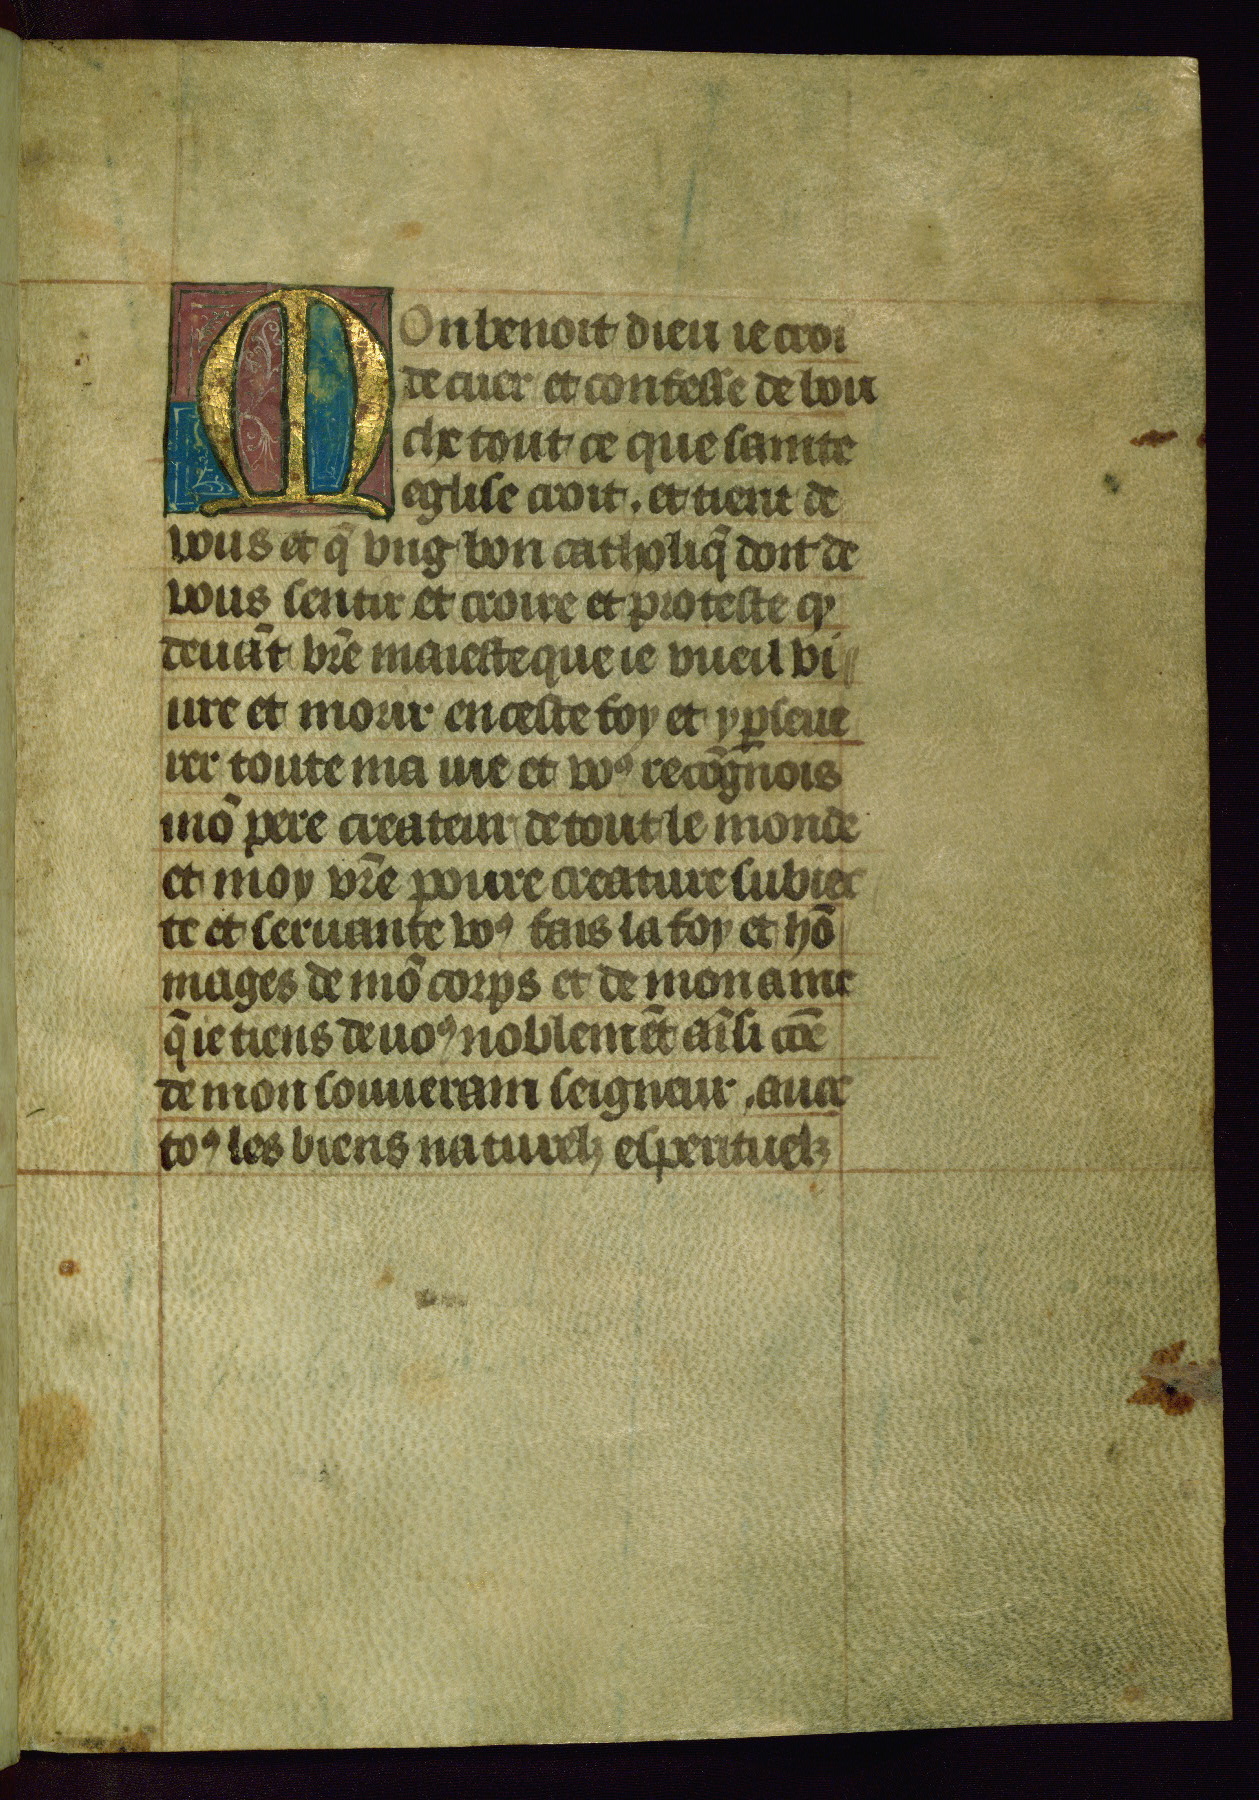 MOn benoit dieu ie croi
de cuer et confesse de bou
che tout ce que sainte
eglise croit . et tient de
vous et q̃ vng bon catholiq̃ doit de
vous sentir et croire et proteste cy
deuãt vr̃e maieste que ie vueil vi
ure et morir en ceste foy et y ꝑseue
rer toute ma uie et voꝰ recõgnois
mõ pere createur de tout le monde
et moy vr̃e poure creature subiec
te et seruante voꝰ fais la foy et hõ
mages de mõ corps et de mon ame
q̃ ie tiens de uoꝰ noblemẽt aĩsi cõe
de mon souuerain seigneur . auec
toꝰ les biens naturelz esperituelz